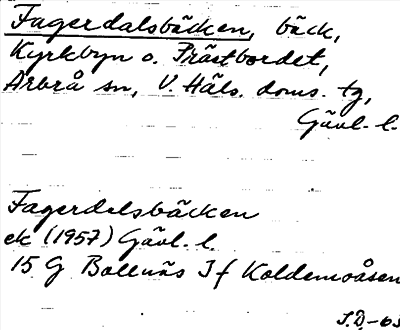 Fagerdalsbäcken, bäck,
Kyrkbyn o. Prästbordet,
Arbrå sn, V. Häls. doms. tg,
Gävl. l.
Fagerdalsbäcken
ek (1957) Gävl. l.
15 G Bollnäs I f Koldemoåsen